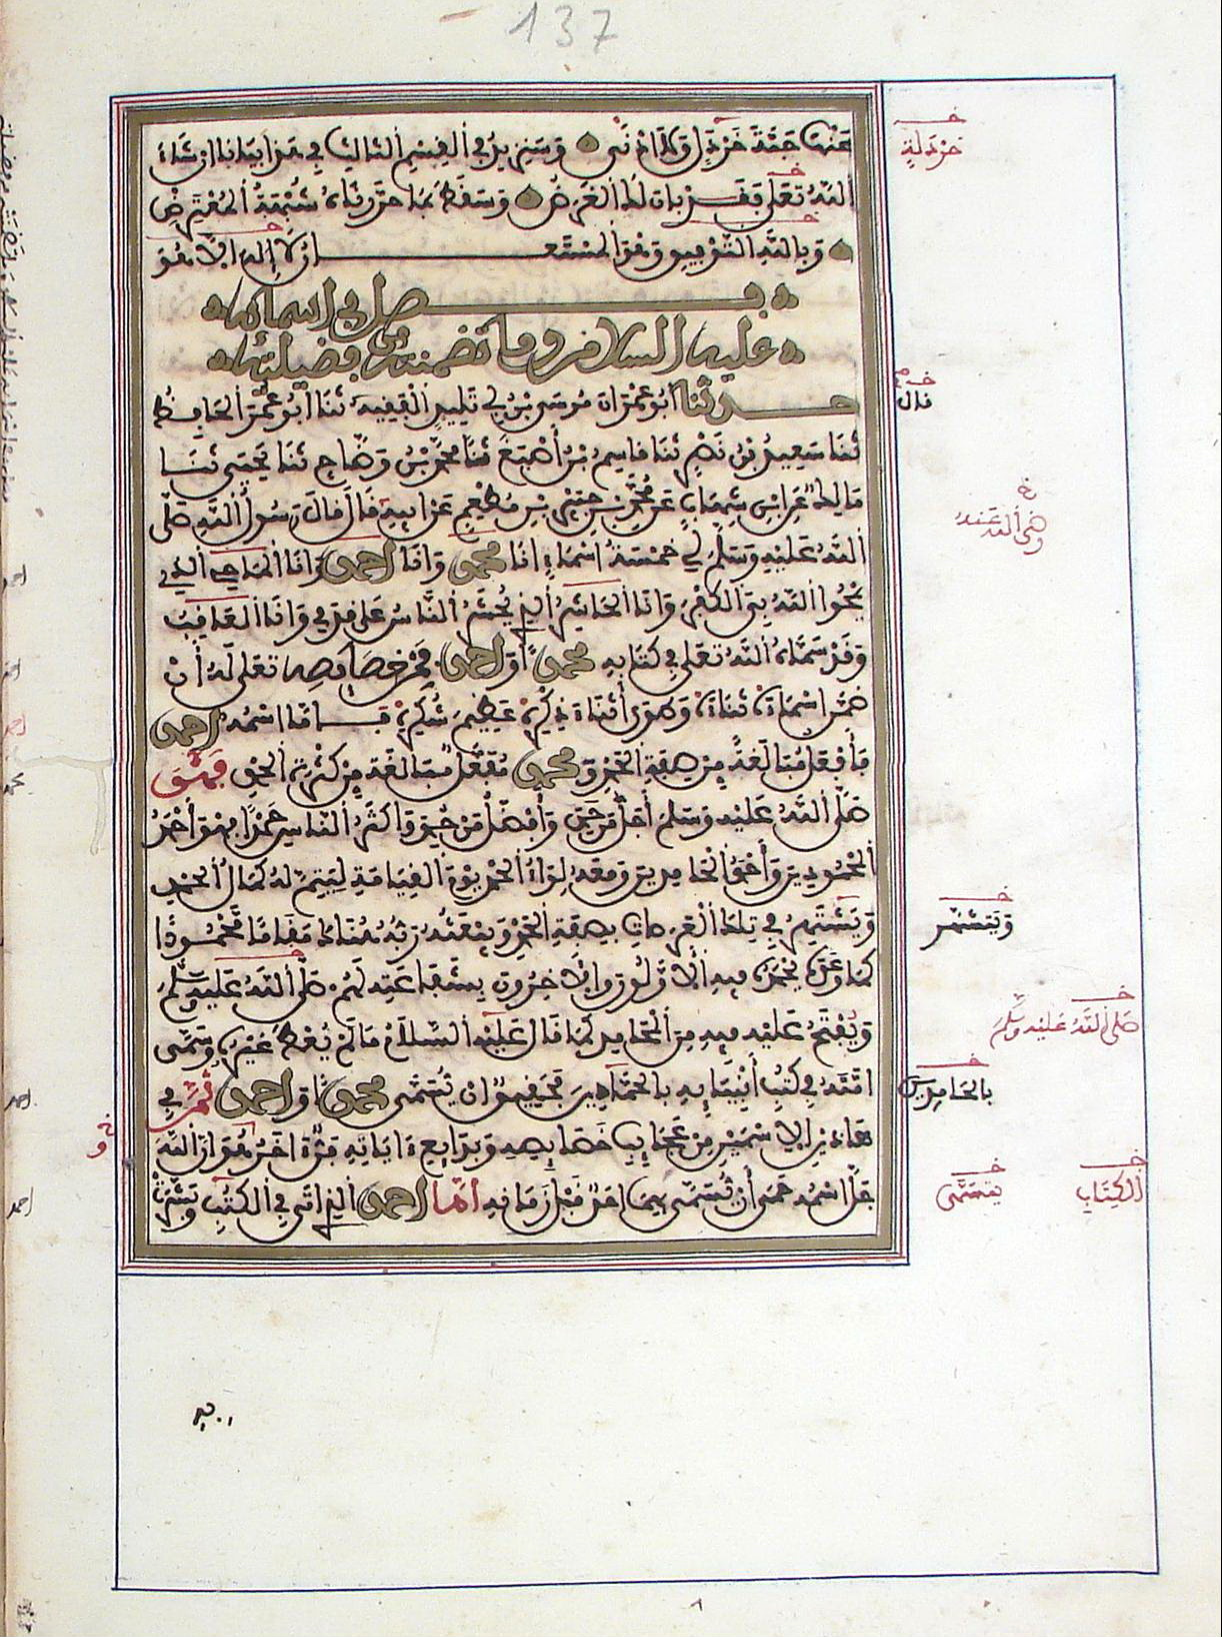 137
عَنْهَا حَبَّةَ خَرْدَلٍ وَلَا أَدْنَى وَسَنَزِيدُ فِي الْقِسْمِ الثَّالِثِ فِي هَذَا بَيَانًا إِنْ شَاءَ
اللَّهُ تَعَلَى فَقَدْ بَانَ لَكَ الْغَرَضُ وَسَقَطَ بِمَا حَرَّرْنَاهُ شُبْهَةُ الْمُعْتَرِضِ
وَبِاللَّهِ التَّوْفِيقِ وَهُوَ الْمُسْتَعَانُ لَا إِلَهَ إِلَّا هُوَ
فصل في اسمائه
عليه السلام وما تضمنته من فضيلته
حدثنا أَبُو عِمْرَانَ مُوسَى بْنُ أَبِي تَلِيدٍ الْفَقِيهُ ثَنَا أَبُو عُمَرَ الْحَافِظُ
ثَنَا سَعِيدُ بْنُ نَصْرٍ ثَنَا قَاسِمُ بْنُ أَصْبَغَ ثَنَا مُحَمَّدُ بْنُ وَضَّاحٍ ثَنَا يَحْيَى ثَنَا
مَالِكٌ عَنِ ابْنِ شِهَابٍ عَنْ مُحَمَّدِ بْنِ جُبَيْرِ بْنِ مُطْعِمٍ عَنْ أَبِيهِ قَالَ قَالَ رَسُولُ اللَّهِ صَلَّى
اللَّهُ عَلَيْهِ وَسَلَّمَ لِي خَمْسَةُ أَسْمَاءٍ أَنَا محمد وَأَنَا احمد وَأَنَا الْمَاحِي الَّذِي
يَمْحُوا اللَّهُ بِيَ الْكُفْرَ وَأَنَا الْحَاشِرُ الَّذِي يُحْشَرُ النَّاسُ عَلَى قَدَمِي وَأَنَا الْعَاقِبُ
وَقَدْ سَمَّاهُ اللَّهُ تَعَلَى فِي كِتَابِهِ محمدا وَ احمد فَمِنْ خَصَائِصِهِ تَعَلَى لَهُ أَنْ
ضَمَّنَ أَسْمَاءَهُ ثَنَاءَهُ وَطَوَى أَثْنَاءَ ذِكْرِهِ عَظِيمَ شُكْرِهِ فَأَمَّا اسْمُهُ احمد
فَأَفْعَلُ مُبَالَغَةً مِنْ صِفَةِ الْحَمْدِ وَ محمد مُفَعَّلٌ مُبَالَغَةً مِنْ كَثْرَةِ الْحَمْدِ فَهُوَ
صَلَّى اللَّهُ عَلَيْهِ وَسَلَّمَ أَجَلُّ مَنْ حَمِدَ وَأَفْضَلُ مَنْ حُمِدَ وَأَكْثَرُ النَّاسِ حَمْدًا فَهُوَ أَحْمَدُ
الْمَحْمُودِينَ وَأَحْمَدُ الْحَامِدِينَ وَمَعَهُ لِوَاءُ الْحَمْدِ يَوْمَ الْقِيَامَةِ لِيَتِمَّ لَهُ كَمَالُ الْحَمْدِ
وَيَشْتَهِرُ فِي تِلْكَ الْعَرَصَاتِ بِصِفَةِ الْحَمْدِ وَيَبْعَثُهُ رَبُّهُ هُنَاكَ مَقَامًا مَحْمُودًا
كَمَا وَعَدَهُ يَحْمَدُهُ فِيهِ الْأَوَّلُونَ وَالْآخِرُونَ بِشَفَاعَتِهِ لَهُمْ صَلَّى اللَّهُ عَلَيْهِ وَسَلَّمَ
وَيُفْتَحُ عَلَيْهِ فِيهِ مِنَ الْمَحَامِدِ كَمَا قَالَ عَلَيْهِ السَّلَامُ مَا لَمْ يُعْطَ غَيْرُهُ وَسَمَّى
أُمَّتَهُ فِي كُتُبِ أَنْبِيَائِهِ بِالْحَمَّادِينَ فَحَقِيقٌ أَنْ يُسَمَّى محمدا وَ احمد ثُمَّ فِي
هَاذَيْنِ الِاسْمَيْنِ مِنْ عَجَائِبِ خَصَائِصِهِ وَبَدَائِعِ ءَايَاتِهِ فَنٌّ ءَاخَرُ هُوَ أَنَّ اللَّهَ
جَلَّ اسْمُهُ حَمَى أَنْ يُسَمَّى بِهِمَا أَحَدٌ قَبْلَ زَمَانِهِ أَمَّا احمد الَّذِي أَتَى فِي الْكُتُبِ وَبَشَّرَتْ
خَرْدَلَةٍ
قال
رضي الله عنه
وَيَتَشَهَّرُ
صَلَّى اللَّهُ عَلَيْهِ وَسَلَّمَ
بِالْحَامِدِينَ
الْكِتَابِ
يَتَسَمَّى